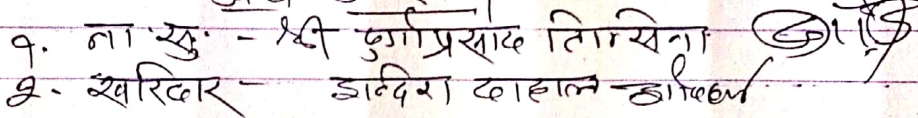 १. ना.सु. - श्री दुर्गाप्रसाद तिम्सिना
२. खरिदार - इन्दिरा दाहाल